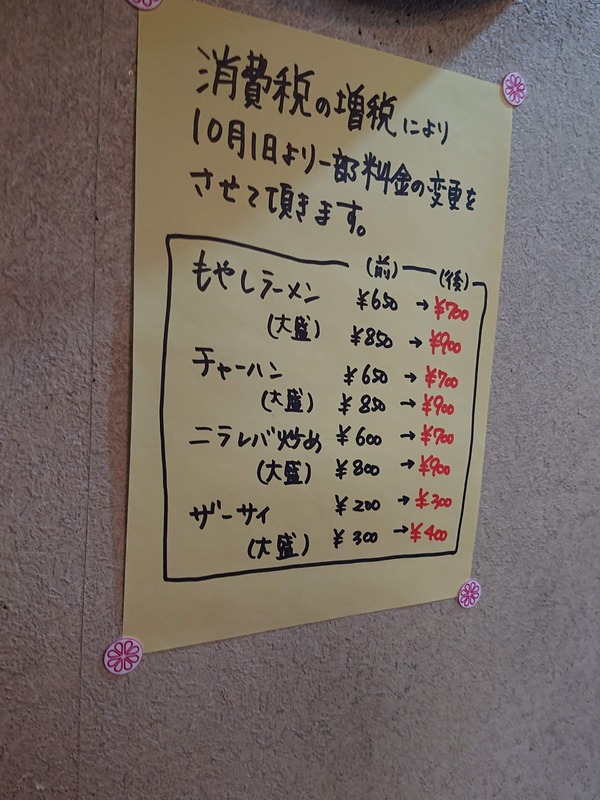 消費税の増税により
10月1日より一部料金の変更を
させて頂きます。
(前) (後)
もやしラーメン ¥650 → ¥700
(大盛) ¥850 → ¥900
チャーハン ¥650 → ¥700
(大盛) ¥850 → ¥900
ニラレバ炒め ¥600 → ¥700
(大盛) ¥800 → ¥900
ザーサイ ¥200 → ¥300
(大盛) ¥300 → ¥400